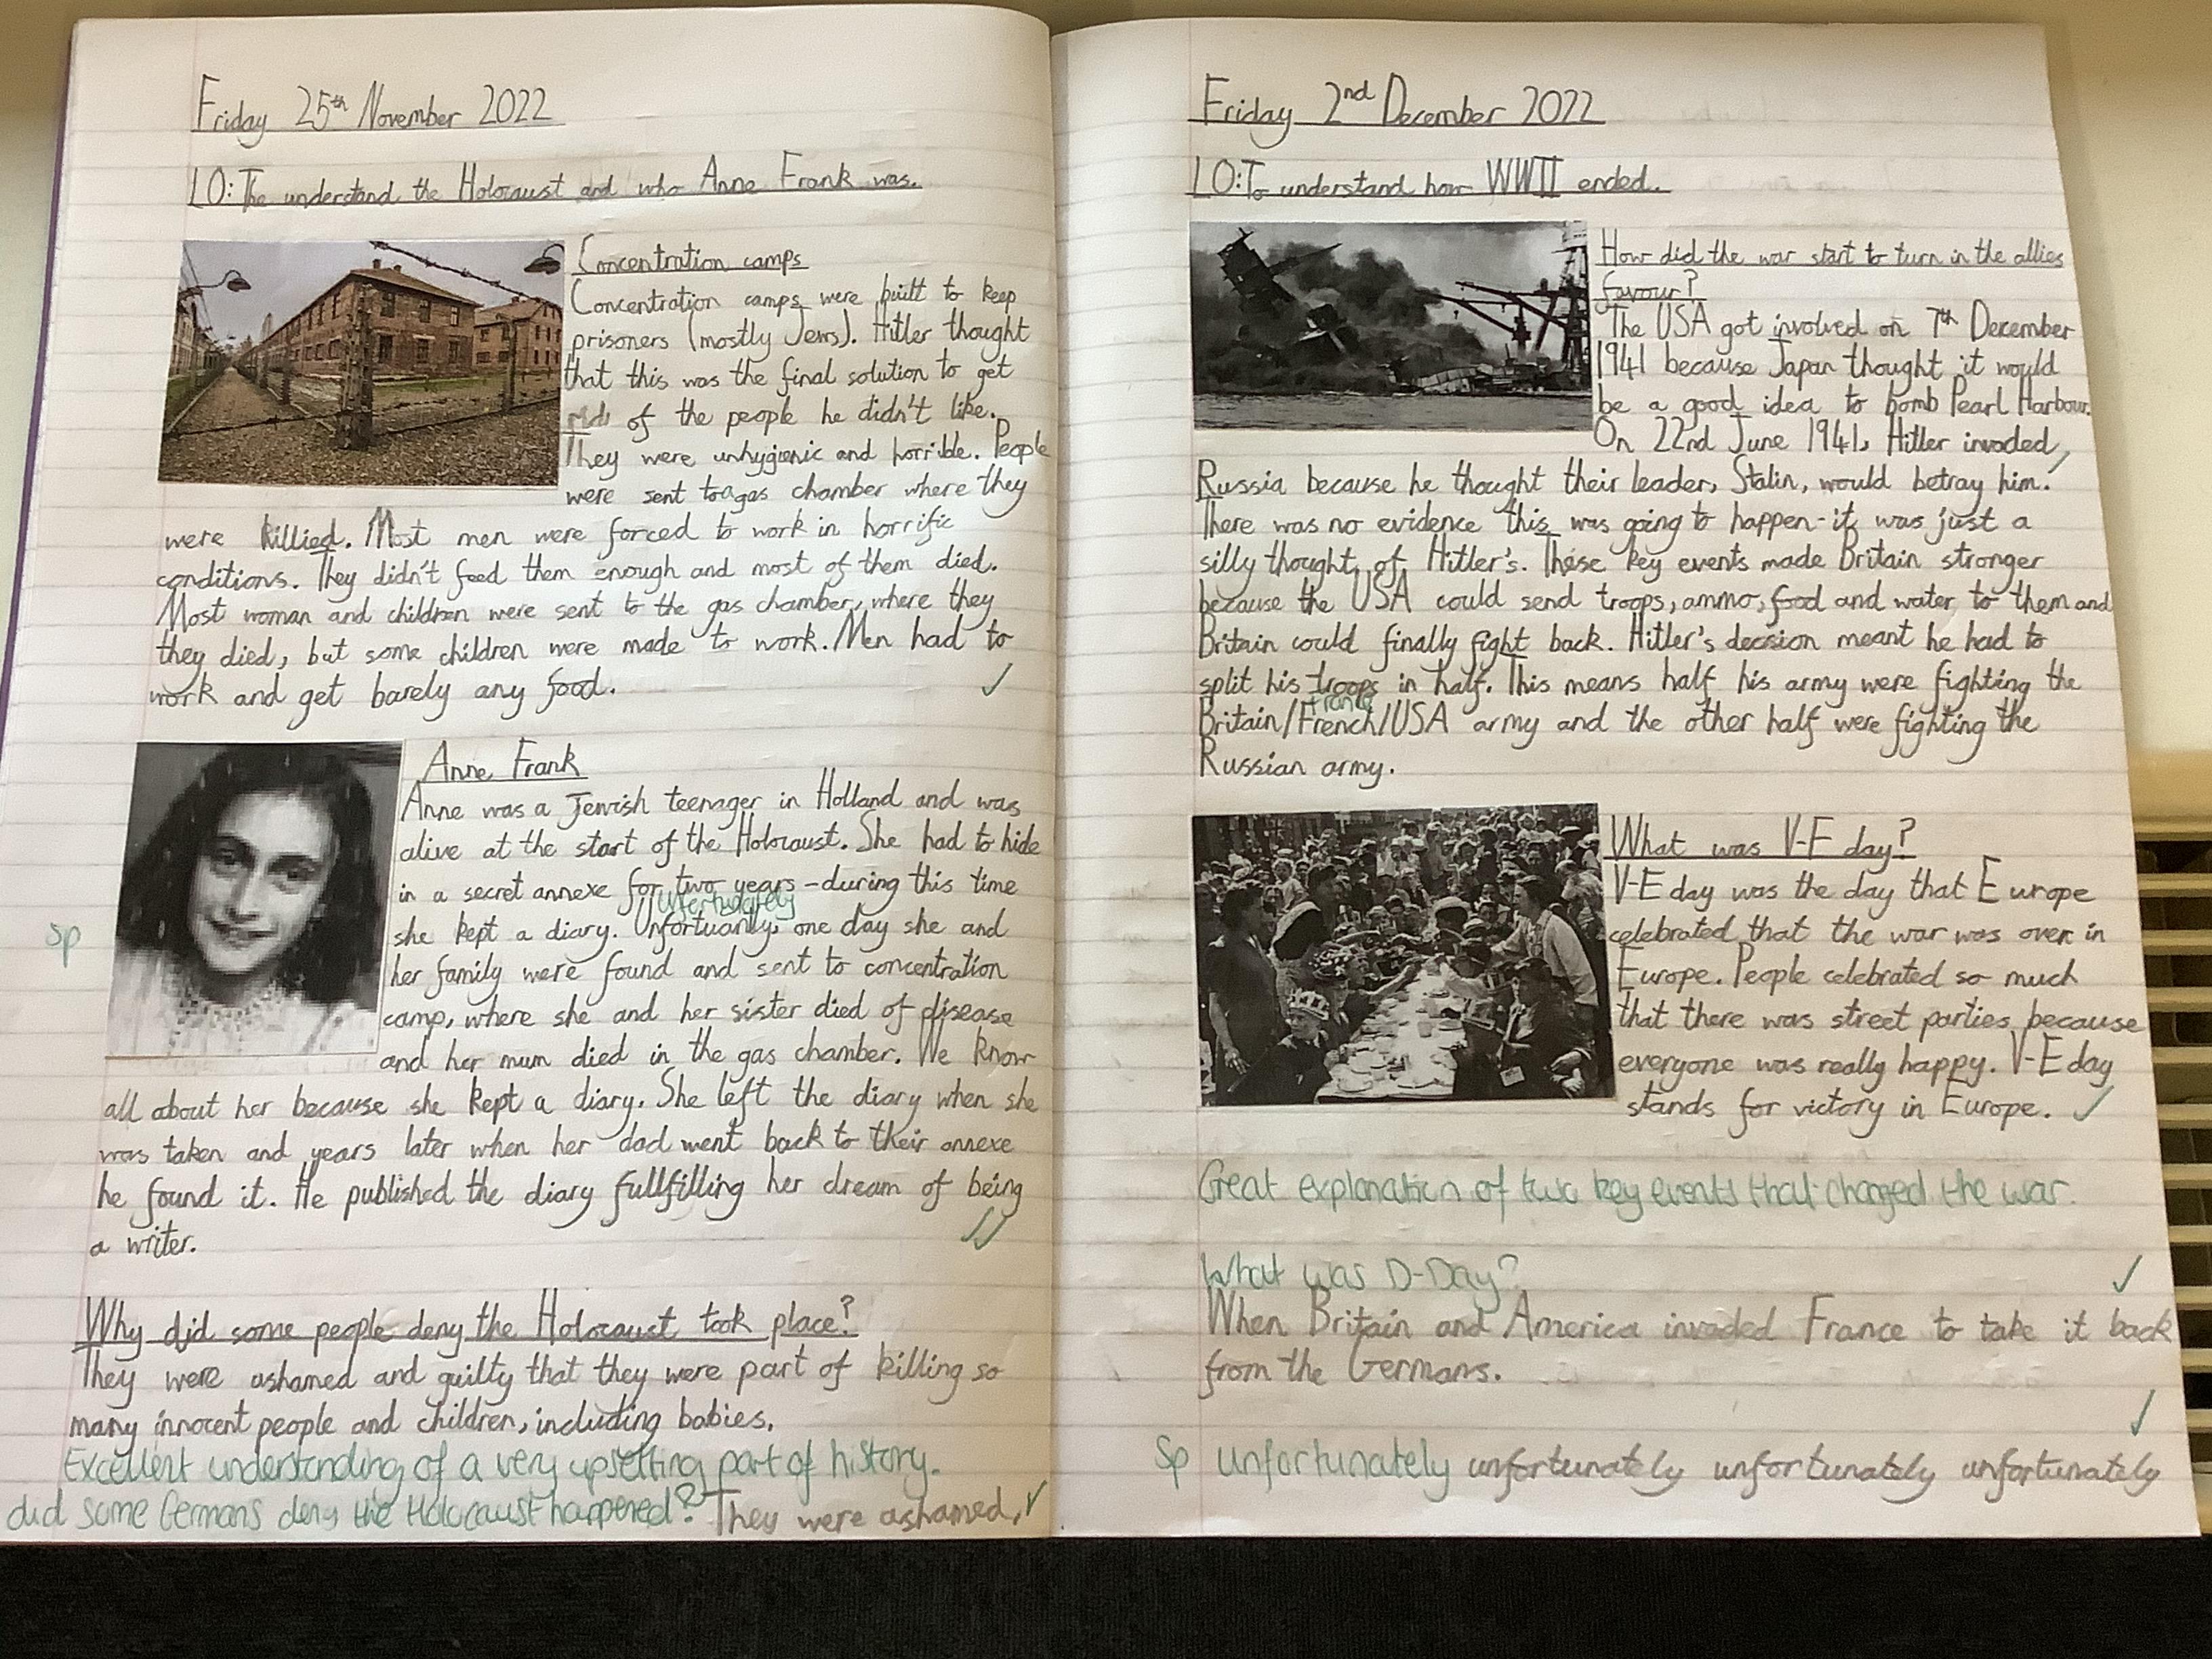 Friday 25th November 2022
LO: The understand the Holocaust and who Anne Frank was.
Concentration camps
Concentration camps were built to keep
prisoners (mostly Jews). Hitler thought
that this was the final solution to get
of the people he didn't like.
They were unhygienic and horrible. People
were sent to a gas chamber where they
were killied. Most men were forced to work in horrific
conditions. They didn't feed them enough and most of them died.
Most woman and children were sent to the gas chamber, where they
they died, but some children were made to work. Men had to
work and get barely any food.
Anne Frank
Anne was a Jewish teenager in Holland and was
alive at the start of the Holocaust. She had to hide
in a secret annexe for two years - during this time
unfortunately
sp she kept a diary. Unfortuantly, one day she and
her family were found and sent to concentration
camp, where she and her sister died of disease
and her mum died in the gas chamber. We know
all about her because she kept a diary. She left the diary when she
was taken and years later when her dad went back to their annexe
he found it. He published the diary fullfilling her dream of being
a writer.
Why did some people deny the Holocaust took place?
They were ashamed and guilty that they were part of killing so
many innocent people and children, including babies.
Excellent understanding of a very upsetting part of history.
did some Germans deny the Holocaust happened? They were ashamed.
Friday 2nd December 2022
LO: To understand how WWII ended.
How did the war start to turn in the allies
favour?
The USA got involved on 7th December
1941 because Japan thought it would
be a good idea to bomb Pearl Harbour.
On 22nd June 1941, Hitler invaded
Russia because he thought their leader, Stalin, would betray him.
There was no evidence this was going to happen - it was just a
silly thought of Hitler's. These key events made Britain stronger
because the USA could send troops, ammo, food and water to them and
Britain could finally fight back. Hitler's decision meant he had to
split his troops in half. This means half his army were fighting the
France
Britain/French/USA army and the other half were fighting the
Russian army.
What was V-E day?
V-E day was the day that Europe
celebrated that the war was over in
Europe. People celebrated so much
that there was street parties because
everyone was really happy. V-E day
stands for victory in Europe.
Great explanation of two key events that changed the war.
What was D-Day?
When Britain and America invaded France to take it back
from the Germans.
Sp unfortunately unfortunately unfortunately unfortunately